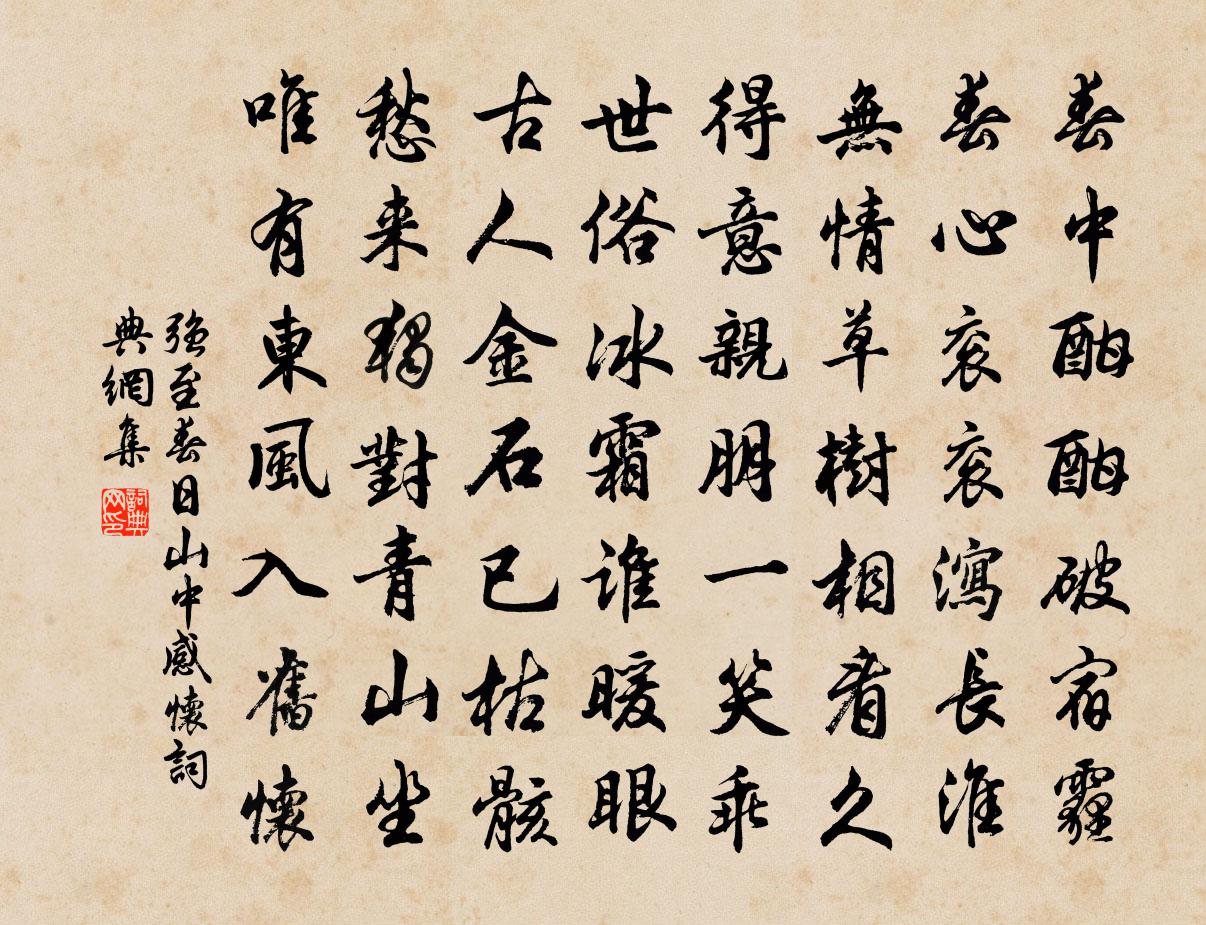 春中酣酣破宿霾
春心袞袞瀉長淮
無情草樹相看久
得意親朋一笑乖
世俗冰霜誰暖眼
古人金石已枯骸
愁来獨對青山坐
唯有東風入舊懷
强至春日山中感懷詞
典網集
詞典
网印